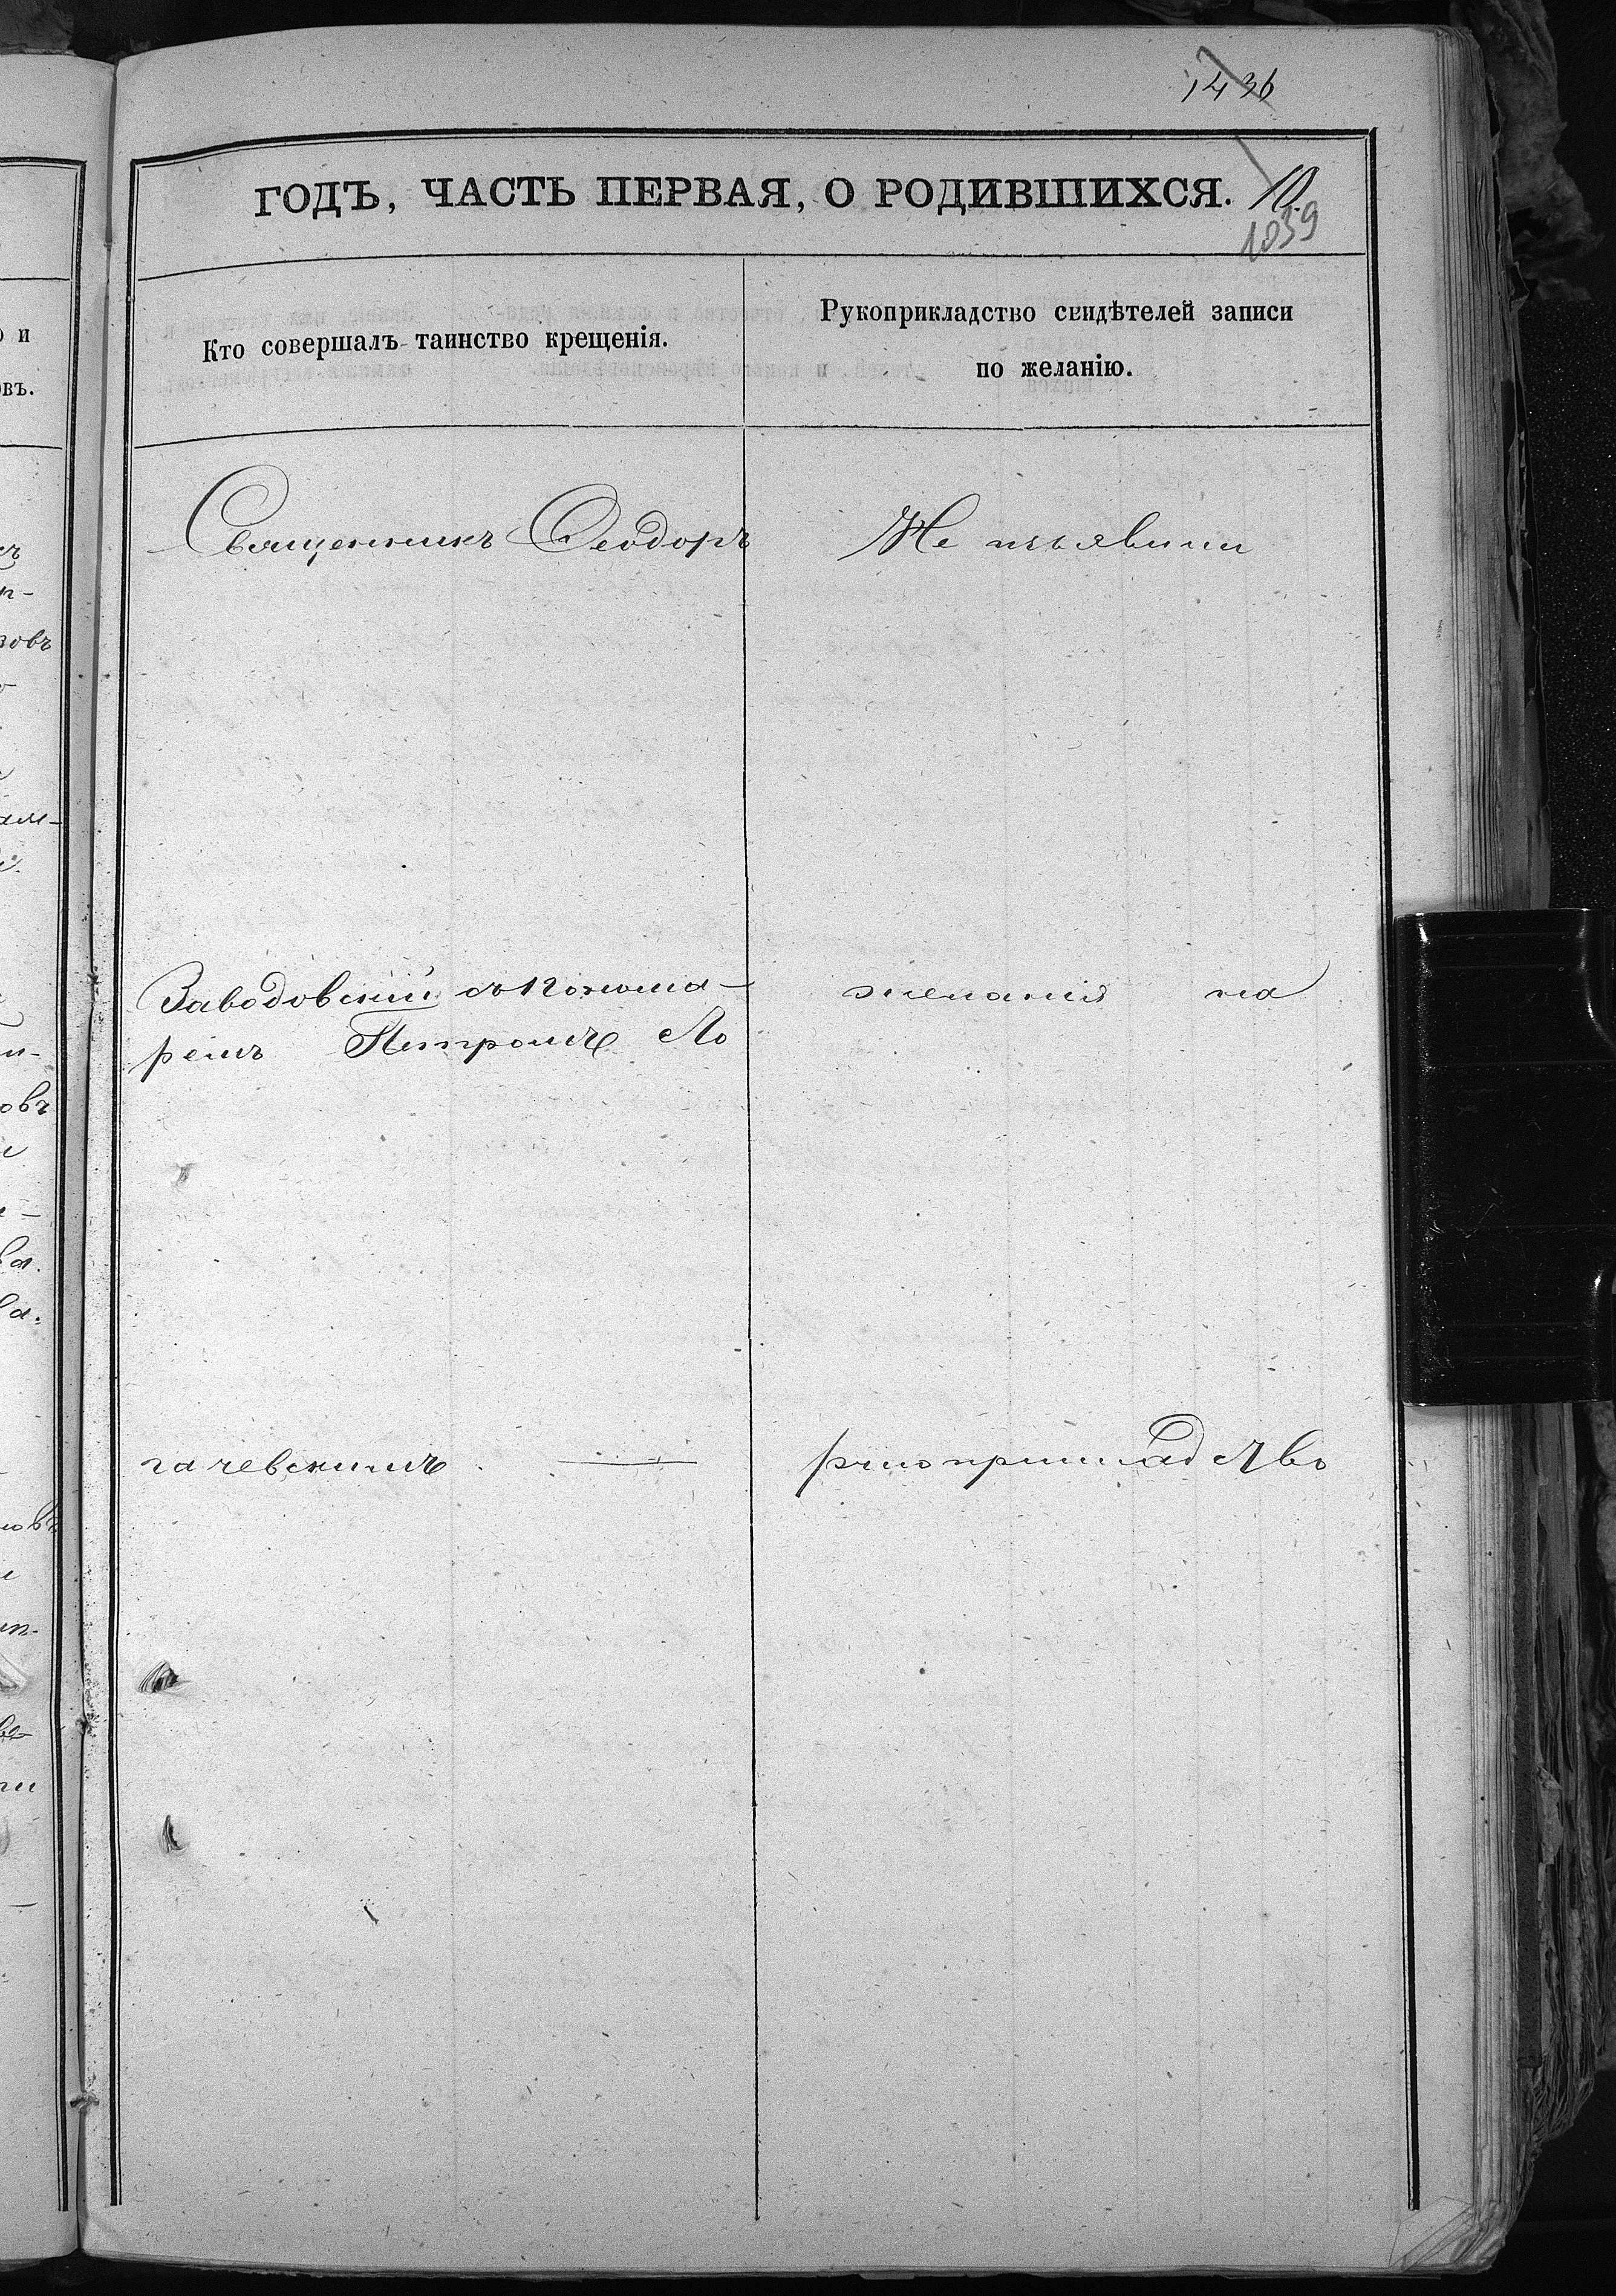 1436
ГОДЪ, ЧАСТЬ ПЕРВАЯ, О РОДИВШИХСЯ. 10.
1039
Кто совершалъ таинство крещенія.
Рукоприкладство свидѣтелей записи
по желанію.
Священникъ Ѳеодоръ
Заводовскій съ понома-
ремъ Петромъ Ло
гачевскимъ.
Не изъявили
желанія на
рукоприкладство
о и
овъ.
зовъ
овъ